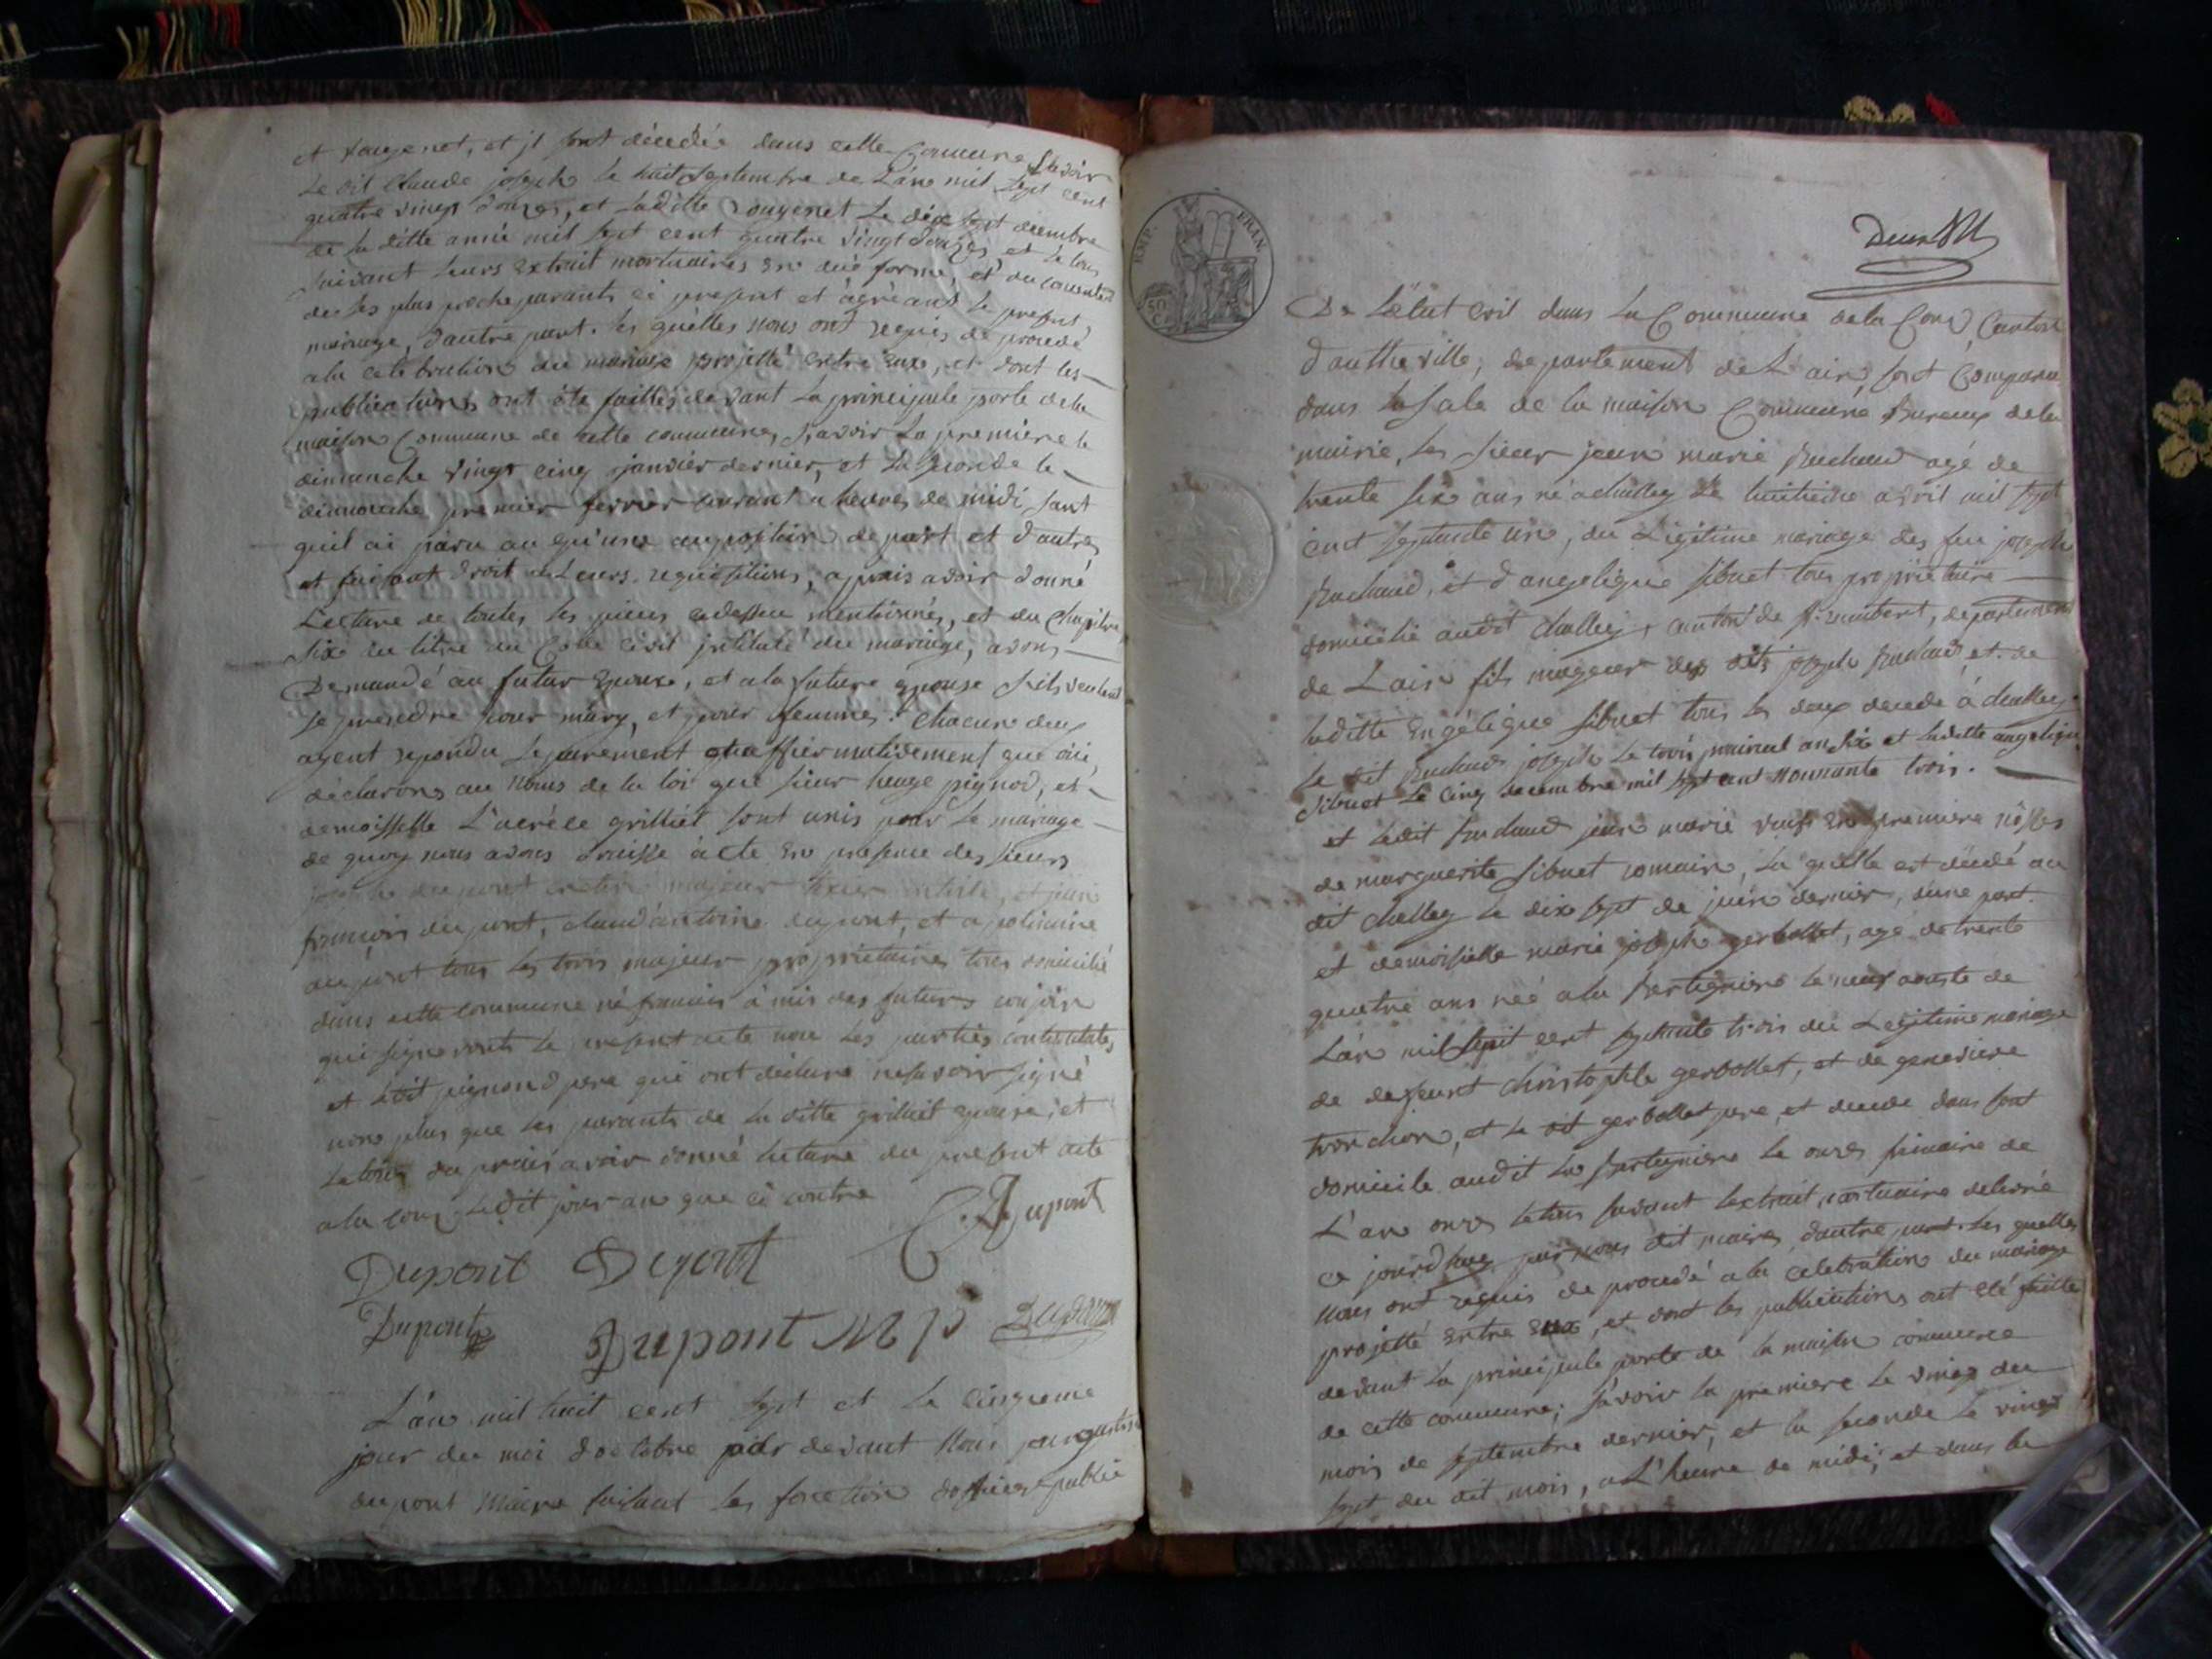 et rougenet, et jl sont décédée dans cette Commune Scavoir
Le dit Claude joseph le huit Septembre de L'an mil sept cent
quatre vingt douzes, et Laditte rougenet Le dix sept décembre
de la ditte année mil sept cent quatre vingt douzes, et le tous
suivant leurs extrait mortuaires en due forme, et du
des ses plus proche parants ci present et agréant le present
mariage, d'autre part. les quelles nous ont requis de procédé
a la celebration du mariage projetté entre eux, et dont les
publications ont été faittes devant la principale porte de la
maison Commune de cette commune, Savoir La premiere le
dimanche vingt cinq janvier dernier, et la seconde le
dimanche premier fevrier courant a heures de midi sant
quil ai paru au qu'une aupositoin de part et d'autres
et faisant droit a Leurs requisitions, aprais avoir donné
Lecture de toutes les pieces cidessu mentionnés, et du Chapitre
Six du titre du Code Civil jntitulé du mariage, avons
Demandé au futur Epoux, et a la future epouse s'ils veulent
se prendre pour mary, et pour femmes: Chacun deux
ayent repondu separement et affirmativement que oui,
déclarons au nom de la loi que sieur pignod, et
demoisselle L'ucrèce grilliet sont unis pour le mariage
de quoy nous avons draisse acte en presence des sieurs
dupont majeur et jean
françois dupont, claud'antoine dupont, et apolinaire
dupont tous les trois majeur propriétaires tous domicilié
dans cette commune né francais a mis des futurs conjoin
qui signeronts le present acte non les parties contractates
et ledit pignond pere qui ont déclaré ne savoir signé
nons plus que les parants de la ditte grilliet epouse; et
Le tous du prais avoir donné lecture du present acte
a la cous Ledit jour an que ci contre C. Dupont
Dupont Dupont
Dupont Dupont M P Dupont
L'an mil huit cent sept et le Cinqieme
jour du moi d'octobre par devant Nous
dupont Maire faisant les fonction d'officier public
Deux
De L'etat Civil dans La Commune de la Cous Canton
d'autheville, departement de L'ain, sont Comparu
dans la sale de la maison Commune Bureaux de la
mairie, les sieur jean marie Ruchaud agé de
trente six ans né a challey le huitieme avril mil sept
cent septante un, du Légitime mariage des feu joseph
Ruchaud, et d'angelique sibuet tous propriétaire
domicilié audit challey, canton de St rambert, departement
de Lain fils mageur des dits joseph Ruchaud et de
laditte Engélique sibuet tous les deux décédé à challey.
le dit Ruchaud joseph Le trois prairial an six et laditte angelique
sibuet Le Cinq décembre mil sept cent nonnante trois.
et ledit Ruchaud jean marie veuf en premiere nôsses
de marguerite sibuet romain, la quelle est décédé au
dit challey le dix sept de juin dernier, d'une part.
et demoiselle marie joseph gerbollet, agé de trente
quatre ans née a la Bertigniere le neuf aouste de
L'an mil sept cent septante trois du Legitime mariage
de deffeunt christophle gerbollet, et de genevieve
tronchon, et le dit gerbollet pere, et décédé dans sont
domicile audit La Bertigniere le onzes frimaire de
L'an onzes le tous suivant lextrait mortuaire delivré
ce jourd'huy par nous dit maires, d'autre part. les quelles
Nous ont requis de procedé a la celebration du mariage
projetté Entre Eux, et dont les publications ont été faitte
devant La principale porte de la maison commune
de cette commune; savoir la premiere le vingt du
mois de septembre dernier, et la seconde le vingt
sept du dit mois, a L'heure de midi; et dans la